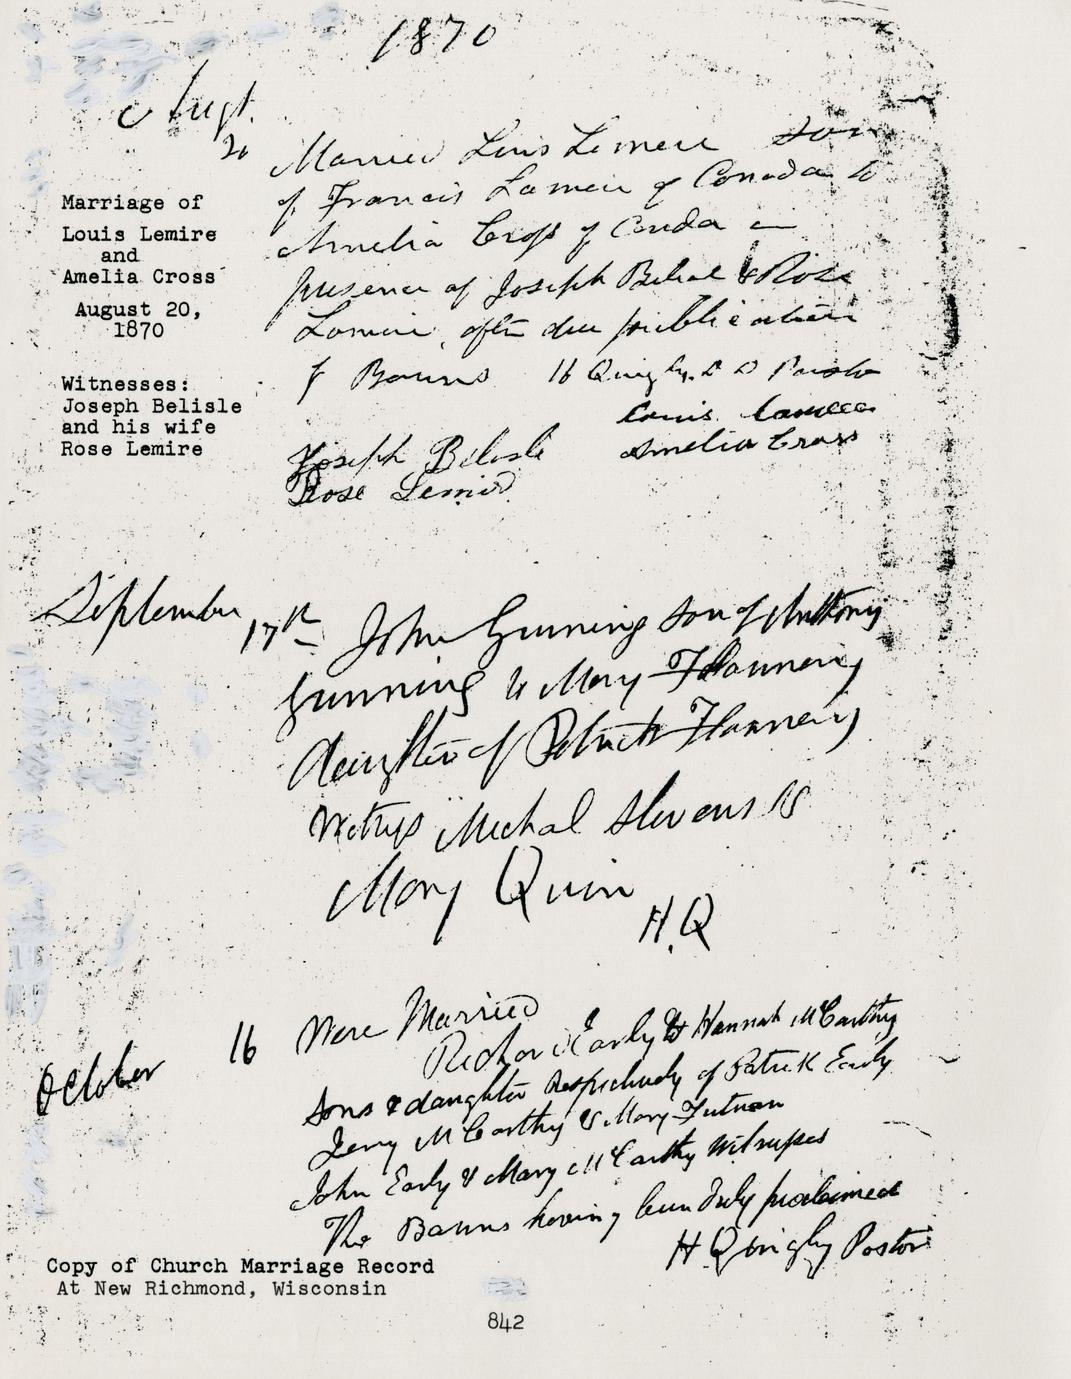 1870
Augt.
20
Married Louis Lemeir son
of Francis Lameir of Canada to
Amelia Cross of Canda in
presence of Joseph Belial & Rose
Lameir, after due publication
of Banns H Quingly, D D Pastor
Louis
Amelia Cross
Joseph Belisle
Rose Lemir
Marriage of
Louis Lemire
and
Amelia Cross
August 20,
1870
Witnesses:
Joseph Belisle
and his wife
Rose Lemire
September 17th John Gunning son of Anthony
Gunning & Mary Flannery
daughter of Patrick Flannery
Witness Michal Stevens &
Mary Quin
H.Q
October 16 Were Married
Richard Early & Hannah McCarthy
Sons & daughter Respectively of Patrick Early
Jerry McCarthy & Mary
John Early & Mary McCarthy Witnesses
The Banns having been Duly proclaimed
H Quingly Pastor
Copy of Church Marriage Record
At New Richmond, Wisconsin
842